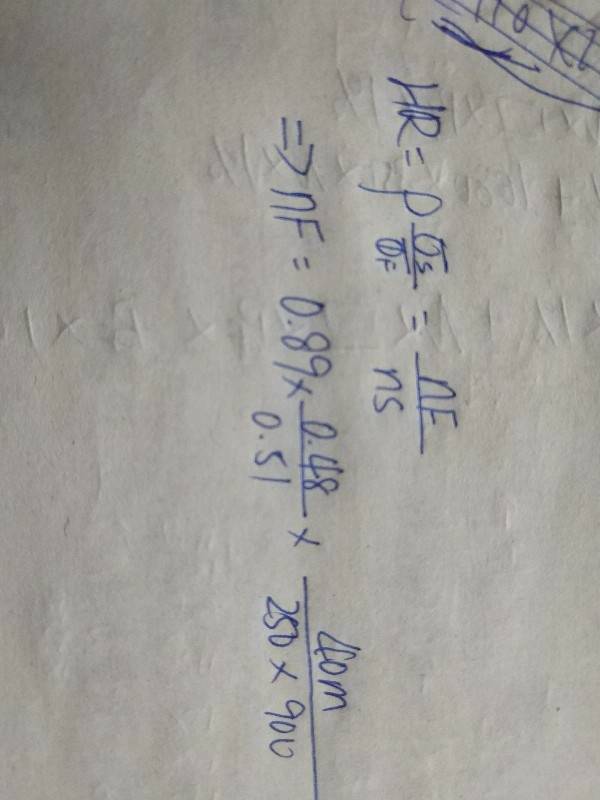 HR = ρ σs/σF = nF/ns
=> nF = 0.89 × 0.48/0.51 × 40m/250 × 900